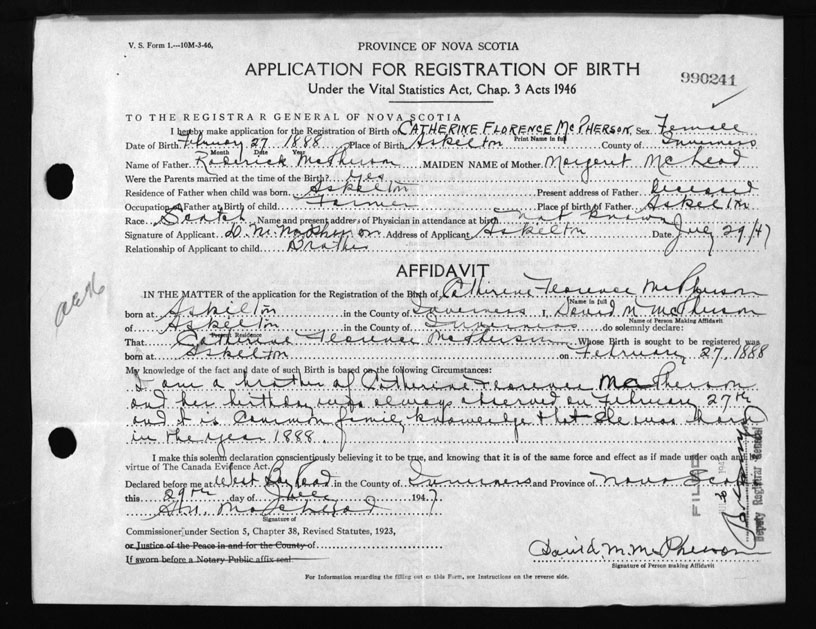 V. S. Form 1.—10M-3-46,
PROVINCE OF NOVA SCOTIA
APPLICATION FOR REGISTRATION OF BIRTH
990241
Under the Vital Statistics Act, Chap. 3 Acts 1946
TO THE REGISTRAR GENERAL OF NOVA SCOTIA
I hereby make application for the Registration of Birth of CATHERINE FLORENCE McPHERSON, Sex Female
Print Name in full
Date of Birth February 27 1888 Place of Birth Askelton County of Inverness
Month Date Year
Name of Father Roderick McPherson MAIDEN NAME of Mother Margaret McLeod
Were the Parents married at the time of the Birth? Yes
Residence of Father when child was born Askelton Present address of Father Deceased
Occupation of Father at Birth of child Farmer Place of birth of Father Askelton
Race Scotch Name and present address of Physician in attendance at birth not known
Signature of Applicant D. M. McPherson Address of Applicant Askelton Date July 29/47
Relationship of Applicant to child Brother
AFFIDAVIT
IN THE MATTER of the application for the Registration of the Birth of Catherine Florence McPherson
Name in full
born at Askelton in the County of Inverness I, David M. McPherson
Name of Person Making Affidavit
of Askelton in the County of Inverness do solemnly declare:
Present Residence
That Catherine Florence McPherson Whose Birth is sought to be registered was
born at Askelton on February 27, 1888
My knowledge of the fact and date of such Birth is based on the following Circumstances:
I am a brother of Catherine Florence McPherson
and her birthday was always observed on February 27th
and it is common family knowledge that she was born
in the year 1888.
I make this solemn declaration conscientiously believing it to be true, and knowing that it is of the same force and effect as if made under oath and by
virtue of The Canada Evidence Act.
Declared before me at West Bay Road in the County of Inverness and Province of Nova Scotia
this 29th day of July 1947
Signature of
Commissioner under Section 5, Chapter 38, Revised Statutes, 1923,
or Justice of the Peace in and for the County of
David M. McPherson
If sworn before a Notary Public affix seal
Signature of Person making Affidavit
For Information regarding the filling out of this Form, see Instructions on the reverse side.
FILMED
Deputy Registrar General